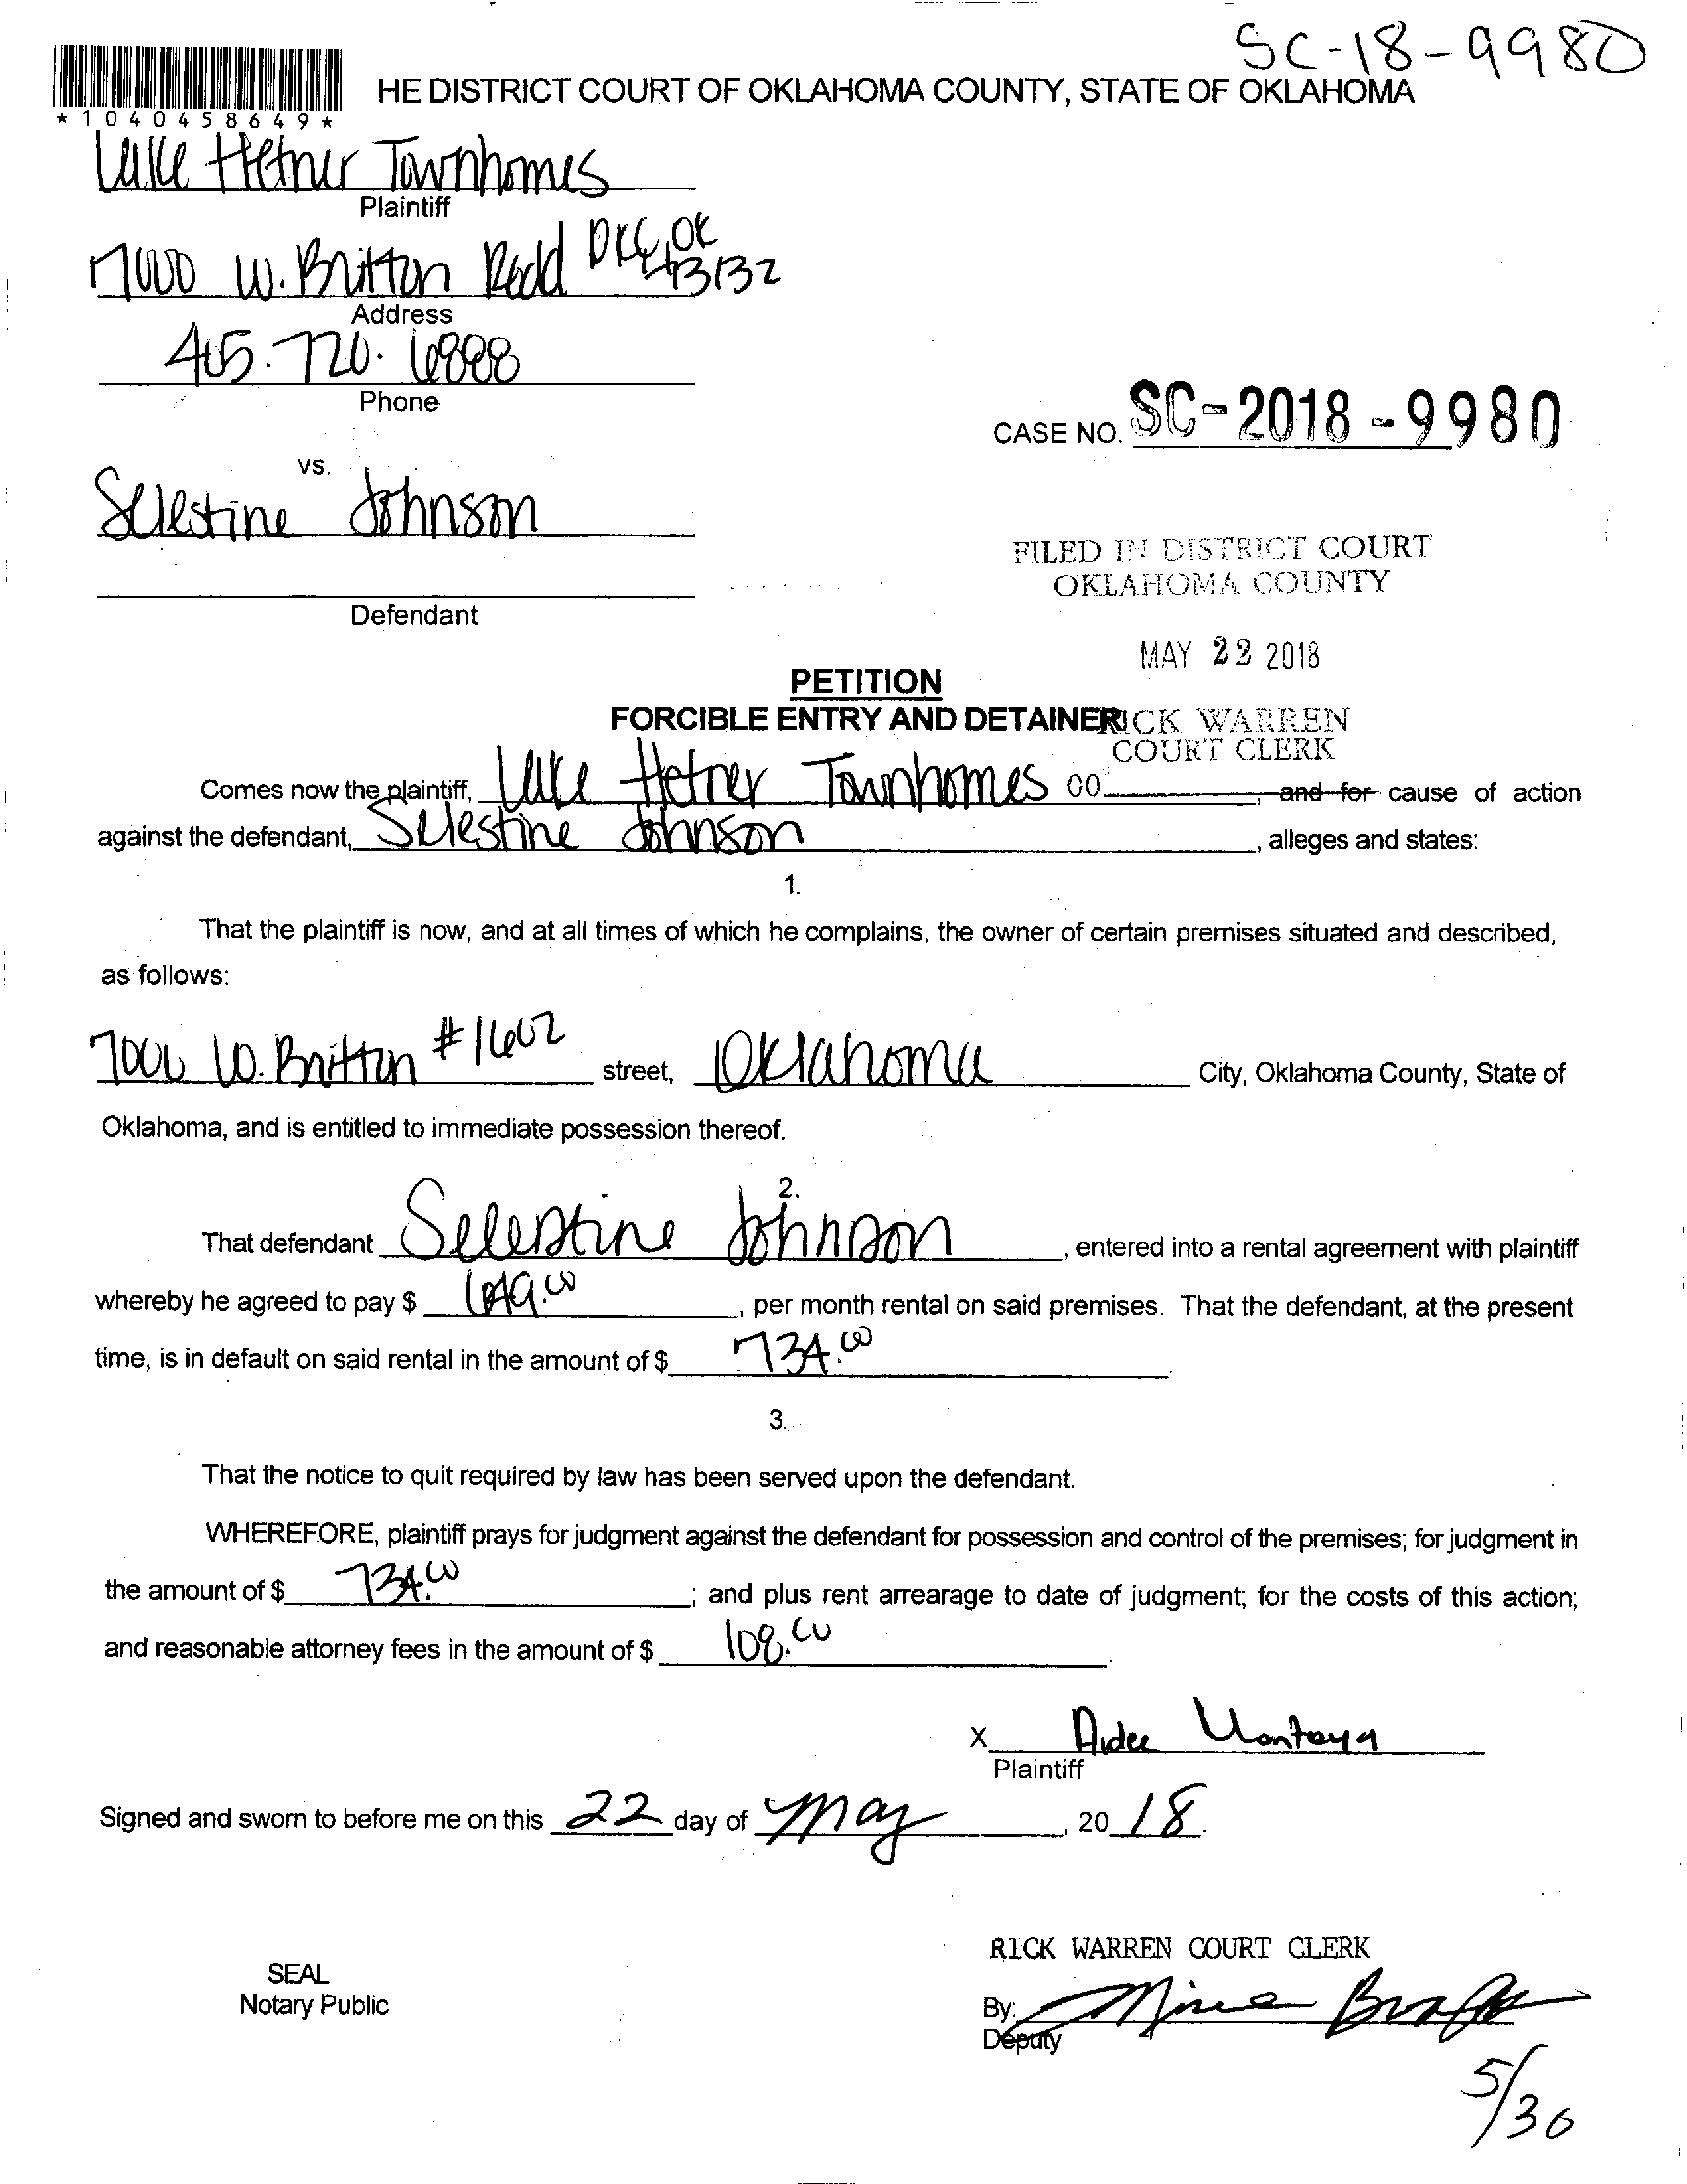 SC-18-9980
HE DISTRICT COURT OF OKLAHOMA COUNTY, STATE OF OKLAHOMA
*1040458649*
Lake Hefner Townhomes
Plaintiff
7000 W. Britton Road OKC, OK 73132
Address
405.720.6888
Phone
CASE NO. SC-2018-9980
vs.
Selestine Johnson
FILED IN DISTRICT COURT
OKLAHOMA COUNTY
Defendant
MAY 22 2018
PETITION
FORCIBLE ENTRY AND DETAINER
RICK WARREN
COURT CLERK
Comes now the plaintiff, Lake Hefner Townhomes and for cause of action
against the defendant, Selestine Johnson, alleges and states:
1.
That the plaintiff is now, and at all times of which he complains, the owner of certain premises situated and described,
as follows:
7000 W. Britton #1602 street, Oklahoma City, Oklahoma County, State of
Oklahoma, and is entitled to immediate possession thereof.
2.
That defendant Selestine Johnson, entered into a rental agreement with plaintiff
whereby he agreed to pay $, per month rental on said premises. That the defendant, at the present
time, is in default on said rental in the amount of $ 734.00
3.
That the notice to quit required by law has been served upon the defendant.
WHEREFORE, plaintiff prays for judgment against the defendant for possession and control of the premises; for judgment in
the amount of $ 734.00; and plus rent arrearage to date of judgment; for the costs of this action;
and reasonable attorney fees in the amount of $ 108.00
X Aidee Montoya
Plaintiff
Signed and sworn to before me on this 22 day of May, 20 18.
RICK WARREN COURT CLERK
SEAL
Notary Public
By:
Deputy
5/30